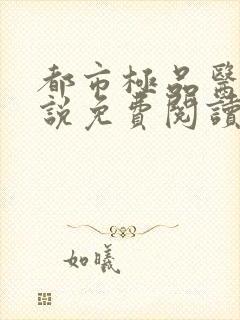 都市極品醫
說免費閱讀
如曦